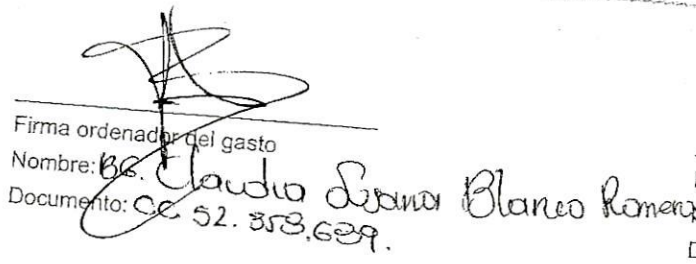 Firma ordenador del gasto
Nombre: BG. Claudia Susana Blanco Romero
Documento: CC 52.353,639.
D